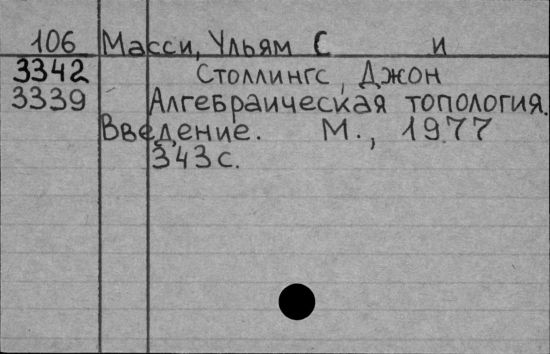 106 Масси, Ульям С и
3342 Столлингс, Джон
3339 Алгебраическая топология.
Введение. М., 1977
343с.